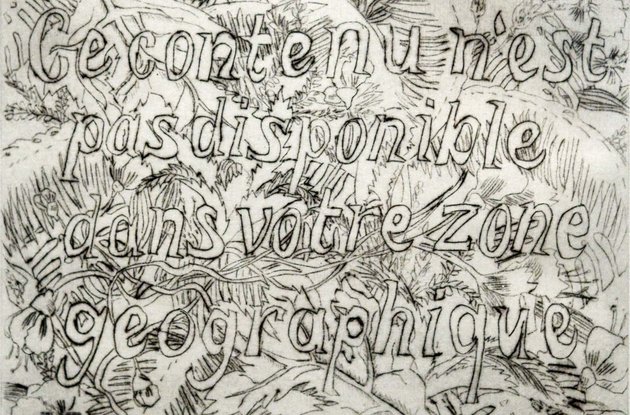 Ce contenu n'est
pas disponible
dans votre zone
geographique